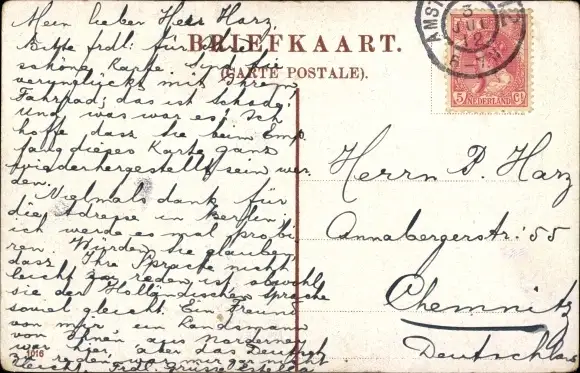 Mein lieber Herr Harz,
Besten frdl. für Ihre
schöne Karte. Sind Sie
verunglückt mit Ihrem
Fahrrad; das ist schade!
Und was war es? Ich
hoffe dasz Sie beim Emp-
fang dieges Karte ganz
wiederhergestellt sein wer-
den.
Vielmals dank für
die Adresse in Berlin;
ich werde es mal probi-
ren. Würden Sie glauben,
dasz Ihre Sprache nicht
leicht zu reden ist, obwohl
sie der Holländischen Sprache
soviel gleicht. Ein Freund
von mir, ein Landsmann
von Ihnen aus Norderney
war hier, aber das Deutsch
zu reden war mir gar nicht
leicht. Frdl. Grüsse
BRIEFKAART.
(CARTE POSTALE).
AMST
3 JUL 12
5 Ct
NEDERLAND
Herrn P. Harz
Annabergerstr: 55
Chemnitz
Deutschland
1016